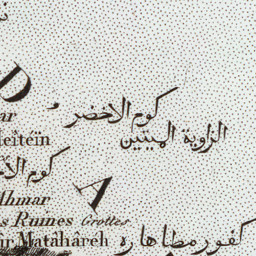 D
كوم الاخضر
الزاوية الميتين
leîtéïn
كوم
A
Ahmar
Ruines Grottes
Matâhâreh
كفور مطاهاره